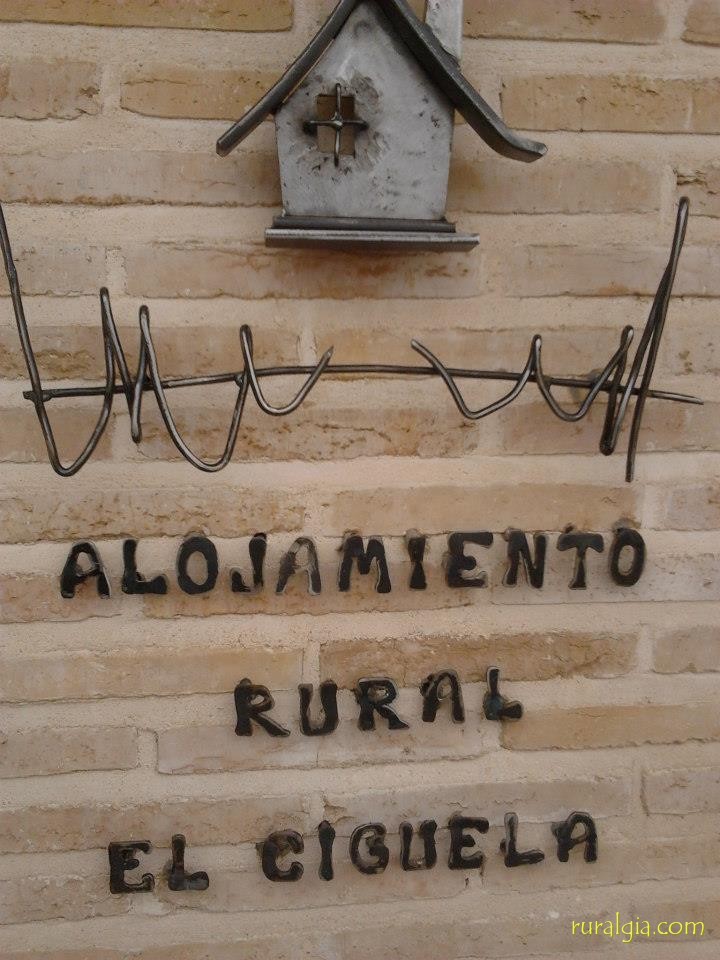 ALOJAMIENTO
RURAL
EL CIGUELA
ruralgia.com